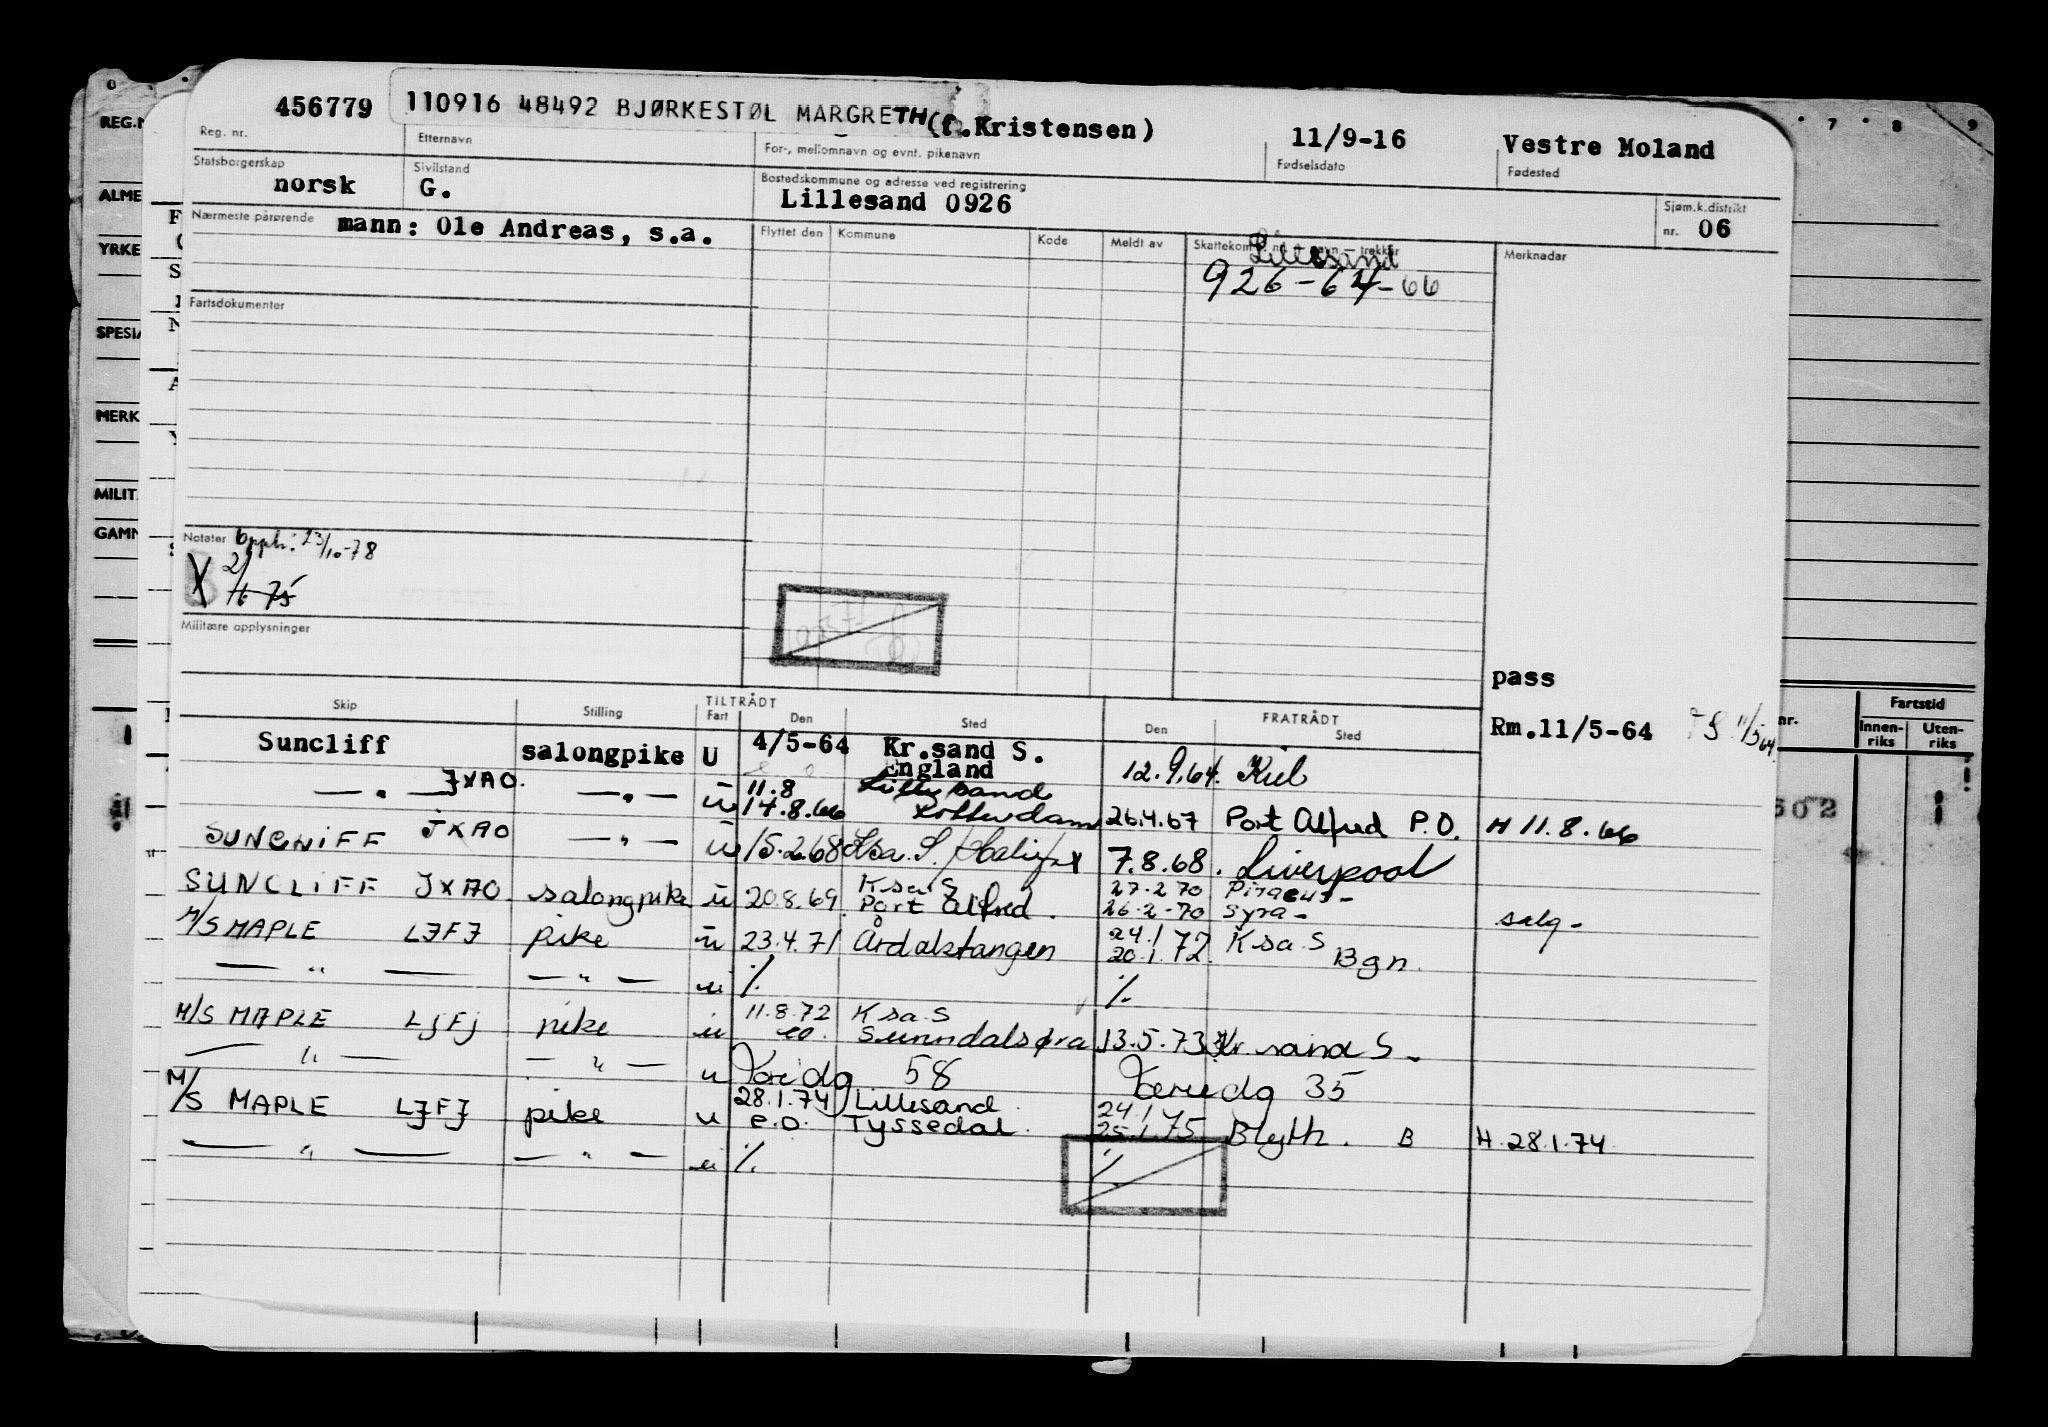 456779 110916 48492 BJØRKESTØL MARGRETH (f.Kristensen) 11/9-16 Vestre Moland
Reg. nr. Etternavn For-, mellomnavn og evnt. pikenavn Fødselsdato Fødested
Statsborgerskap Sivilstand Bostedskommune og adresse ved registrering
norsk G. Lillesand 0926
Sjøm.k.distrikt nr. 06
Nærmeste pårørende mann: Ole Andreas, s.a.
Flyttet den Kommune Kode Meldt av Skattekom. Merknader
Lillesand
926-64-66
Fartsdokumenter
Notater Opph: 23/10-78
X
Militære opplysninger
pass
Skip Stilling TILTRÅDT FRATRÅDT
Fart Den Sted Den Sted
Rm.11/5-64 11/5 64
Suncliff salongpike U 4/5-64 Kr.sand S. England 12.9.64. Kiel
— " — JXAO. — " — u 11.8 Lillesand
14.8.66 Rotterdam 26.4.67 Port Alfred P.O. H 11.8.66
SUNCLIFF JXAO — " — u 15.2.68 Ksa. S. / Halifax 7.8.68. Liverpool
SUNCLIFF JXAO. salongpike u 20.8.69. Ksa S 27.2 70 Piraeus -
Port Alfred. 26-2-70 Syra - salg -
M/S MAPLE LJFJ pike u 23.4.71 Årdalstangen 24.1 72 Ksa. S
20.1. Bgn.
— " — — " — u %. %.
M/S MAPLE LJFJ pike u 11.8.72 Ksa. S
eo. Sunndalsøra 13.5.73 Kr. sand S.
— " — — " — u 58 35
M/S MAPLE LJFJ pike u 28.1.74 Lillesand 24.1
e.o. Tyssedal. 25.1.75 Blyth. B H. 28.1.74
— " — — " — u %. %.
REG.N
ALME
YRKE
SPESIA
MERK
MILIT.
GAMN
7 8 9
nr. Fartstid
Innen-riks Uten-riks
502